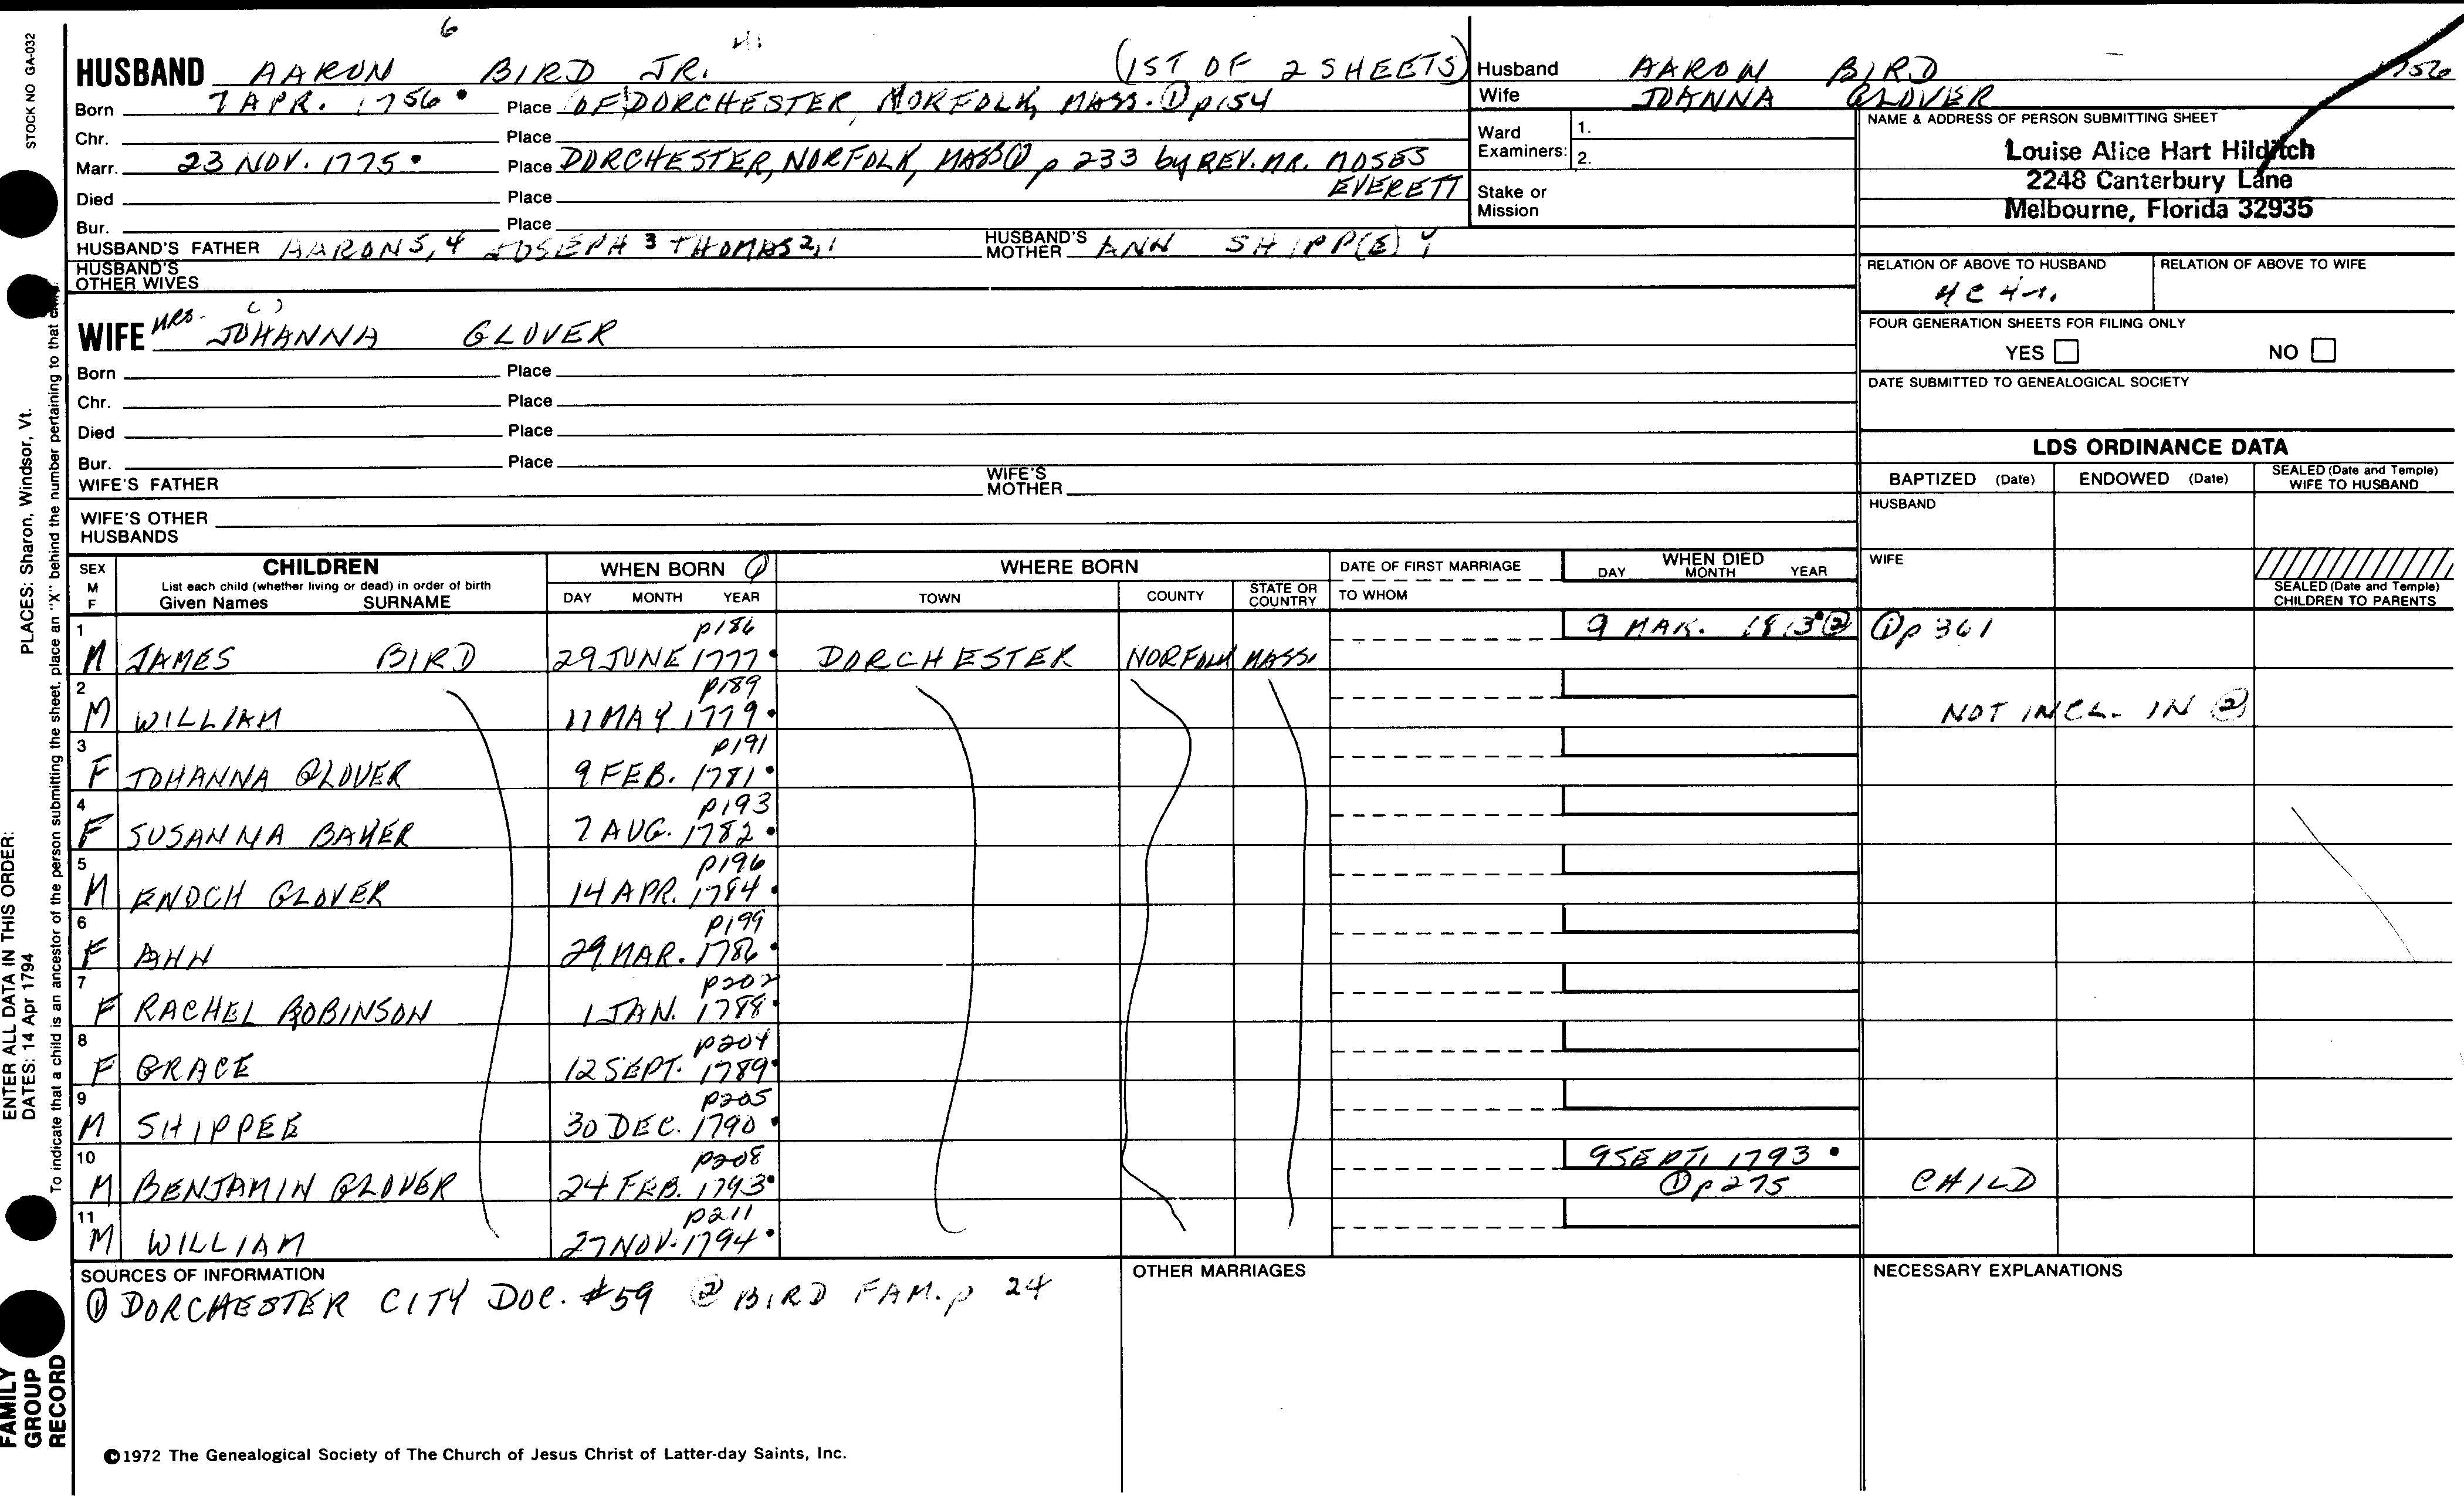 6
HUSBAND AARON BIRD JR. (1ST OF 2 SHEETS)
Born 7 APR. 1756 • Place OF DORCHESTER, NORFOLK, MASS. ① p154
Chr. Place
Marr. 23 NOV. 1775 • Place DORCHESTER, NORFOLK, MASS ① p 233 by REV. MR. MOSES EVERETT
Died Place
Bur. Place
HUSBAND'S FATHER AARON 5, 4 JOSEPH 3 THOMAS 2,1 HUSBAND'S MOTHER ANN SHIPP(E)Y
HUSBAND'S OTHER WIVES
WIFE MRS. ( ) JOHANNA GLOVER
Born Place
Chr. Place
Died Place
Bur. Place
WIFE'S FATHER WIFE'S MOTHER
WIFE'S OTHER HUSBANDS
Husband AARON BIRD 1756
Wife JOANNA GLOVER
Ward Examiners: 1.
2.
Stake or Mission
NAME & ADDRESS OF PERSON SUBMITTING SHEET
Louise Alice Hart Hilditch
2248 Canterbury Lane
Melbourne, Florida 32935
RELATION OF ABOVE TO HUSBAND RELATION OF ABOVE TO WIFE
FOUR GENERATION SHEETS FOR FILING ONLY
YES NO
DATE SUBMITTED TO GENEALOGICAL SOCIETY
LDS ORDINANCE DATA
BAPTIZED (Date) ENDOWED (Date) SEALED (Date and Temple) WIFE TO HUSBAND
HUSBAND
WIFE
SEALED (Date and Temple) CHILDREN TO PARENTS
SEX M F
CHILDREN
List each child (whether living or dead) in order of birth
Given Names SURNAME
WHEN BORN ①
DAY MONTH YEAR
WHERE BORN
TOWN COUNTY STATE OR COUNTRY
DATE OF FIRST MARRIAGE
TO WHOM
WHEN DIED
DAY MONTH YEAR
1 p186 9 MAR. 1813 • ② ① p 361
M JAMES BIRD 29 JUNE 1777 • DORCHESTER NORFOLK MASS.
2 p189
M WILLIAM 11 MAY 1779 • NOT INCL. IN ②
3 p191
F JOHANNA GLOVER 9 FEB. 1781 •
4 p193
F SUSANNA BAKER 7 AUG. 1782 •
5 p196
M ENOCH GLOVER 14 APR. 1784 •
6 p199
F ANN 29 MAR. 1786 •
7 p202
F RACHEL ROBINSON 1 JAN. 1788 •
8 p204
F GRACE 12 SEPT. 1789 •
9 p205
M SHIPPEE 30 DEC. 1790 •
10 p208 9 SEPT. 1793 •
M BENJAMIN GLOVER 24 FEB. 1793 • ① p275 CHILD
11 p211
M WILLIAM 27 NOV. 1794 •
SOURCES OF INFORMATION
① DORCHESTER CITY DOC. #59 ② BIRD FAM. p 24
OTHER MARRIAGES
NECESSARY EXPLANATIONS
©1972 The Genealogical Society of The Church of Jesus Christ of Latter-day Saints, Inc.
STOCK NO GA-032
PLACES: Sharon, Windsor, Vt.
ENTER ALL DATA IN THIS ORDER:
DATES: 14 Apr 1794
To indicate that a child is an ancestor of the person submitting the sheet, place an "X" behind the number pertaining to that
FAMILY
GROUP
RECORD